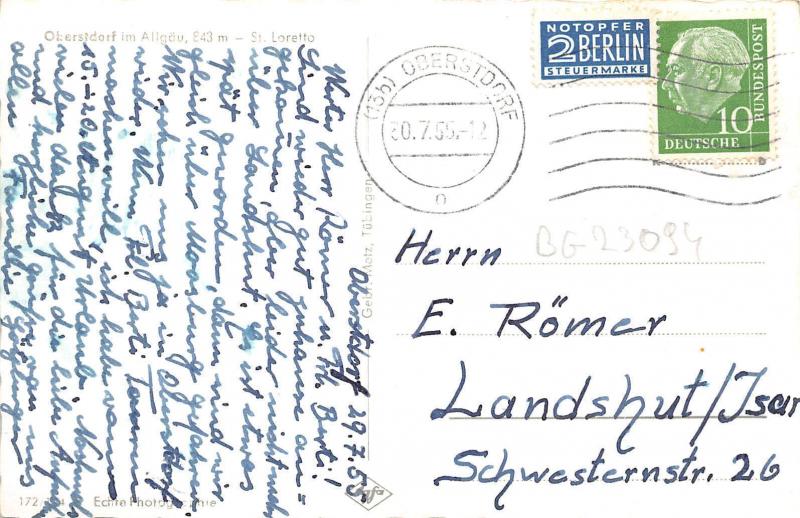 Oberstdorf im Allgäu, 843 m – St. Loretto
Oberstdorf 29.7.55
Werter Herr Römer u. Frl. Berti!
Sind wieder gut zuhause an=
gekommen, aber leider nicht mehr
über Landshut. Es ist etwas
spät geworden, dann sind wir
gleich über Moosburg gefahren.
Wir sehen uns ja in Oberstdorf
wieder. Wenn Frl. Berti kommen
will, ich habe vom
15 – 20. August Urlaub. Nochmals
vielen Dank für die liebe Aufn.
und herzliche Grüße von uns
allen
Familie
172 Echte Photographie
Gebr. Metz, Tübingen
NOTOPFER
2 BERLIN
STEUERMARKE
10
DEUTSCHE
BUNDESPOST
(13b) OBERSTDORF
30.7.55.-12
o
BG23094
Herrn
E. Römer
Landshut/Isar
Schwesternstr. 26